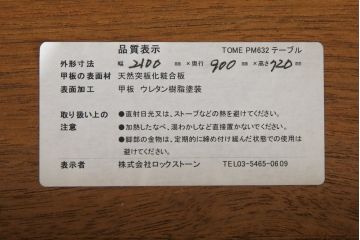 品質表示 TOME PM632 テーブル
外形寸法 幅 2100 mm×奥行 900 mm×高さ 720 mm
甲板の表面材 天然突板化粧合板
表面加工 甲板 ウレタン樹脂塗装
取り扱い上の注意
●直射日光又は、ストーブなどの熱を避けてください。
●加熱したなべ、湯わかしなど直接置かないでください。
●脚部の金物は、定期的に締め付け緩んだ状態での使用は
避けてください。
表示者 株式会社ロックストーン TEL03-5465-0609